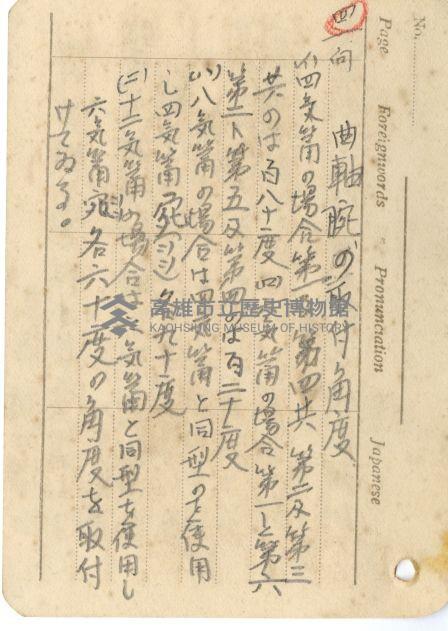 No.
Page Foreignwords Pronunciation Japanese
(四)問 曲軸腕の取付角度
(イ)四気筩の場合第一及第四共 第二及第三
共のは百八十度 (ロ)六気筩の場合第一と第六
第二ト第五及第三第四のは百二十度
(ハ)八気筩の場合は四気筩と同型のを使用
し四気筩宛 九十度
(ニ)十二気筩の場合は六気筩と同型を使用し
六気筩宛 各六十度の角度を取付
けてゐる。
高雄市立歷史博物館
KAOHSIUNG MUSEUM OF HISTORY